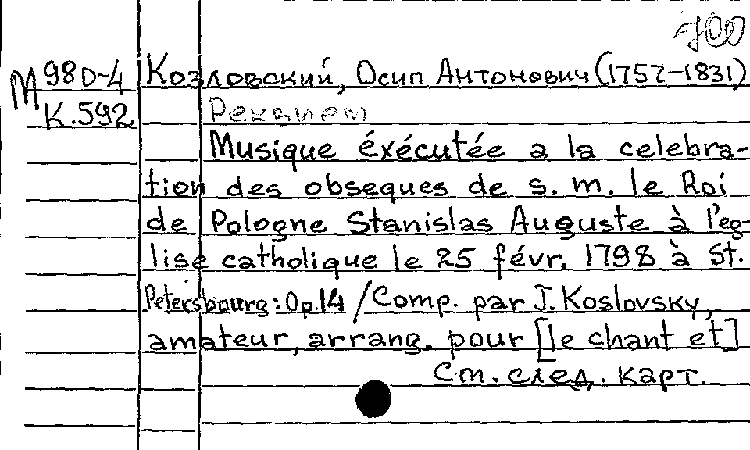 М 980-4 Козловский, Осип Антонович (1757-1831)
К.592 Реквием
Musique éxécutée a la celebra-
tion des obseques de s. m. le Roi
de Pologne Stanislas Auguste à l'eg-
lise catholique le 25 févr. 1798 à St.
Petersbourg: Op.14 / Comp. par J. Koslovsky,
amateur, arrang. pour [le chant et]
См. след. карт.